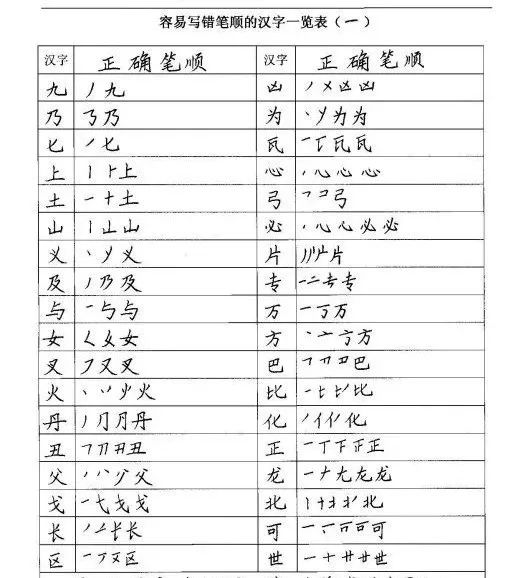 容易写错笔顺的汉字一览表（一）
汉字 正确笔顺 汉字 正确笔顺
九 丿九 凶 丿㐅区凶
乃 𠄎乃 为 丶丷为为
匕 丿匕 瓦 一瓦瓦
上 丨⺊上 心 丶心心心
土 一十土 弓 𠃍コ弓
山 丨山山 必 丶心心必必
义 丶丷义 片 丿片
及 丿乃及 专 一二专专
与 一与与 万 一丆万
女 𡿨女女 方 丶亠方方
叉 フ又叉 巴 𠃍巴
火 丶丷火 比 一比
丹 丿冂月丹 化 丿亻化
丑 丑 正 一丅下正正
父 丿八父 龙 一ナ尢龙龙
戈 一弋戈戈 北 丨北
长 丿长长 可 一丅可可
区 一フ区 世 一十廿世